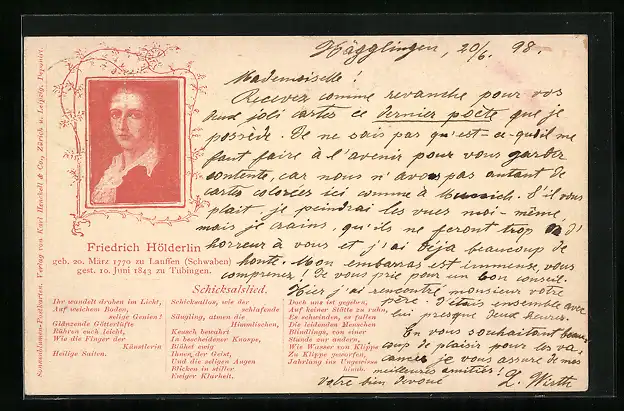 Hägglingen, 20/6. 98.
Mademoiselle!
Recevez comme revanche pour vos
deux joli cartes ce dernier poète que je
possède. Je ne sais pas qu'est-ce-qu'il me
faut faire à l'avenir pour vous garder
contente, car nous n'avons pas autant de
cartes colorées ici comme à Munich. S'il vous
plait, je peindrai les vues moi-même,
mais je crains, qu'ils ne feront trop d'
horreur à vous et j'ai déja beaucoup de
honte. Mon embarras est immense, vous
comprenez! Je vous prie pour un bon conseil.
Hier j'ai rencontré monsieur votre
père. J'étais ensemble avec
lui presque deux heures.
En vous souhaitant beau-
coup de plaisir pour les va-
cances je vous assure de mes
meilleures amitiés!
votre bien dévoué L. Wirth
Sonnenblumen-Postkarten. Verlag von Karl Henckell & Co., Zürich u. Leipzig. Deponirt.
Friedrich Hölderlin
geb. 20. März 1770 zu Lauffen (Schwaben)
gest. 10. Juni 1843 zu Tübingen.
Schicksalslied.
Ihr wandelt droben im Licht,
Auf weichem Boden,
selige Genien!
Glänzende Götterlüfte
Rühren euch leicht,
Wie die Finger der
Künstlerin
Heilige Saiten.
Schicksallos, wie der
schlafende
Säugling, atmen die
Himmlischen,
Keusch bewahrt
In bescheidener Knospe,
Blühet ewig
Ihnen der Geist,
Und die seligen Augen
Blicken in stiller
Ewiger Klarheit.
Doch uns ist gegeben,
Auf keiner Stätte zu ruhn,
Es schwinden, es fallen
Die leidenden Menschen
Blindlings, von einer
Stunde zur andern,
Wie Wasser von Klippe
Zu Klippe geworfen,
Jahrlang ins Ungewisse
hinab.